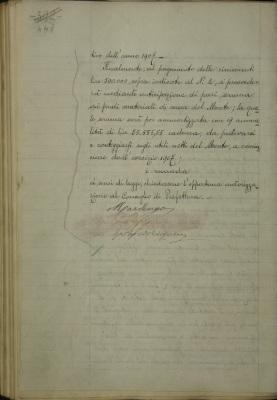 tivo dell'anno 1907.
Finalmente, al pagamento delle rimanenti
Lire 500.000 sopra indicate al N. 2, si provvederà
mediante anticipazione di pari somma
sui fondi materiali di cassa del Monte; la quale
somma sarà poi ammortizzata con 9 annualità
di Lire 55.555,55 cadauna, da prelevarsi
e conteggiarsi sugli utili netti del Monte, a cominciare
dall'esercizio 1907.
e manda
ai sensi di legge, chiedersene l'opportuna autorizzazione
al Consiglio di Prefettura.